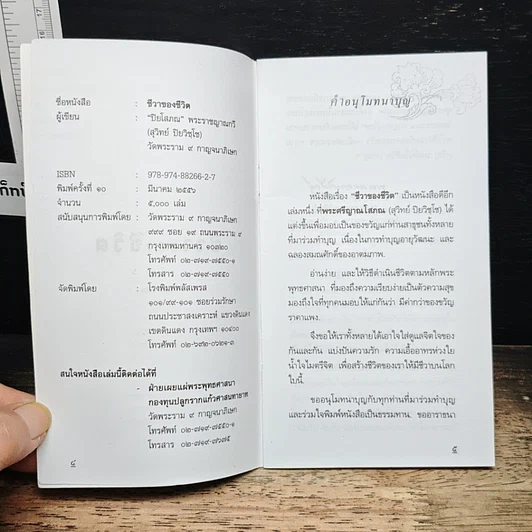 ชื่อหนังสือ : ชีวาของชีวิต
ผู้เขียน : "ปิยโสภณ" พระราชญาณกวี
(สุวิทย์ ปิยวิชฺโช)
วัดพระราม ๙ กาญจนาภิเษก
ISBN : 978-974-88266-2-7
พิมพ์ครั้งที่ ๑๐ : มีนาคม ๒๕๕๖
จำนวน : ๕,๐๐๐ เล่ม
สนับสนุนการพิมพ์โดย : วัดพระราม ๙ กาญจนาภิเษก
๙๙๙ ซอย ๑๙ ถนนพระราม ๙
กรุงเทพมหานคร ๑๐๓๒๐
โทรศัพท์ ๐๒-๗๑๙-๗๕๕๐-๑
โทรสาร ๐๒-๗๑๙-๗๕๕๐
จัดพิมพ์โดย : โรงพิมพ์พลัสเพรส
๑๐๑/๙๙-๑๐๑ ซอยร่วมรักษา
ถนนประชาสงเคราะห์ แขวงดินแดง
เขตดินแดง กรุงเทพฯ ๑๐๔๐๐
โทรศัพท์ ๐๒-๖๙๒-๐๖๒๑-๓
สนใจหนังสือเล่มนี้ติดต่อได้ที่
- ฝ่ายเผยแผ่พระพุทธศาสนา
กองทุนปลูกรากแก้วศาสนทายาท
วัดพระราม ๙ กาญจนาภิเษก
โทรศัพท์ ๐๒-๗๑๙-๗๕๕๐-๑
โทรสาร ๐๒-๗๑๙-๗๖๗๕
๔
คำอนุโมทนาบุญ
หนังสือเรื่อง "ชีวาของชีวิต" เป็นหนังสือดีอีก
เล่มหนึ่ง ที่พระศรีญาณโสภณ (สุวิทย์ ปิยวิชฺโช) ได้
แต่งขึ้นเพื่อมอบเป็นของขวัญแก่ท่านสาธุชนทั้งหลาย
ที่มาร่วมทำบุญ เนื่องในการทำบุญอายุวัฒนะ และ
ฉลองสมณศักดิ์ของอาตมภาพ.
อ่านง่าย และให้วิธีดำเนินชีวิตตามหลักพระ
พุทธศาสนา ที่มองถึงความเรียบง่ายเป็นตัวความสุข
มองถึงใจที่ทุกคนมอบให้แก่กันว่า มีค่ากว่าของขวัญ
ราคาแพง.
จึงขอให้เราทั้งหลายได้เอาใจใส่ดูแลจิตใจของ
กันและกัน แบ่งปันความรัก ความเอื้ออาทรห่วงใย
น้ำใจไมตรีจิต เพื่อสร้างชีวิตของเราให้มีชีวาบนโลก
ใบนี้.
ขออนุโมทนาบุญกับทุกท่านที่มาร่วมทำบุญ
และร่วมใจพิมพ์หนังสือเป็นธรรมทาน. ขออาราธนา
๕